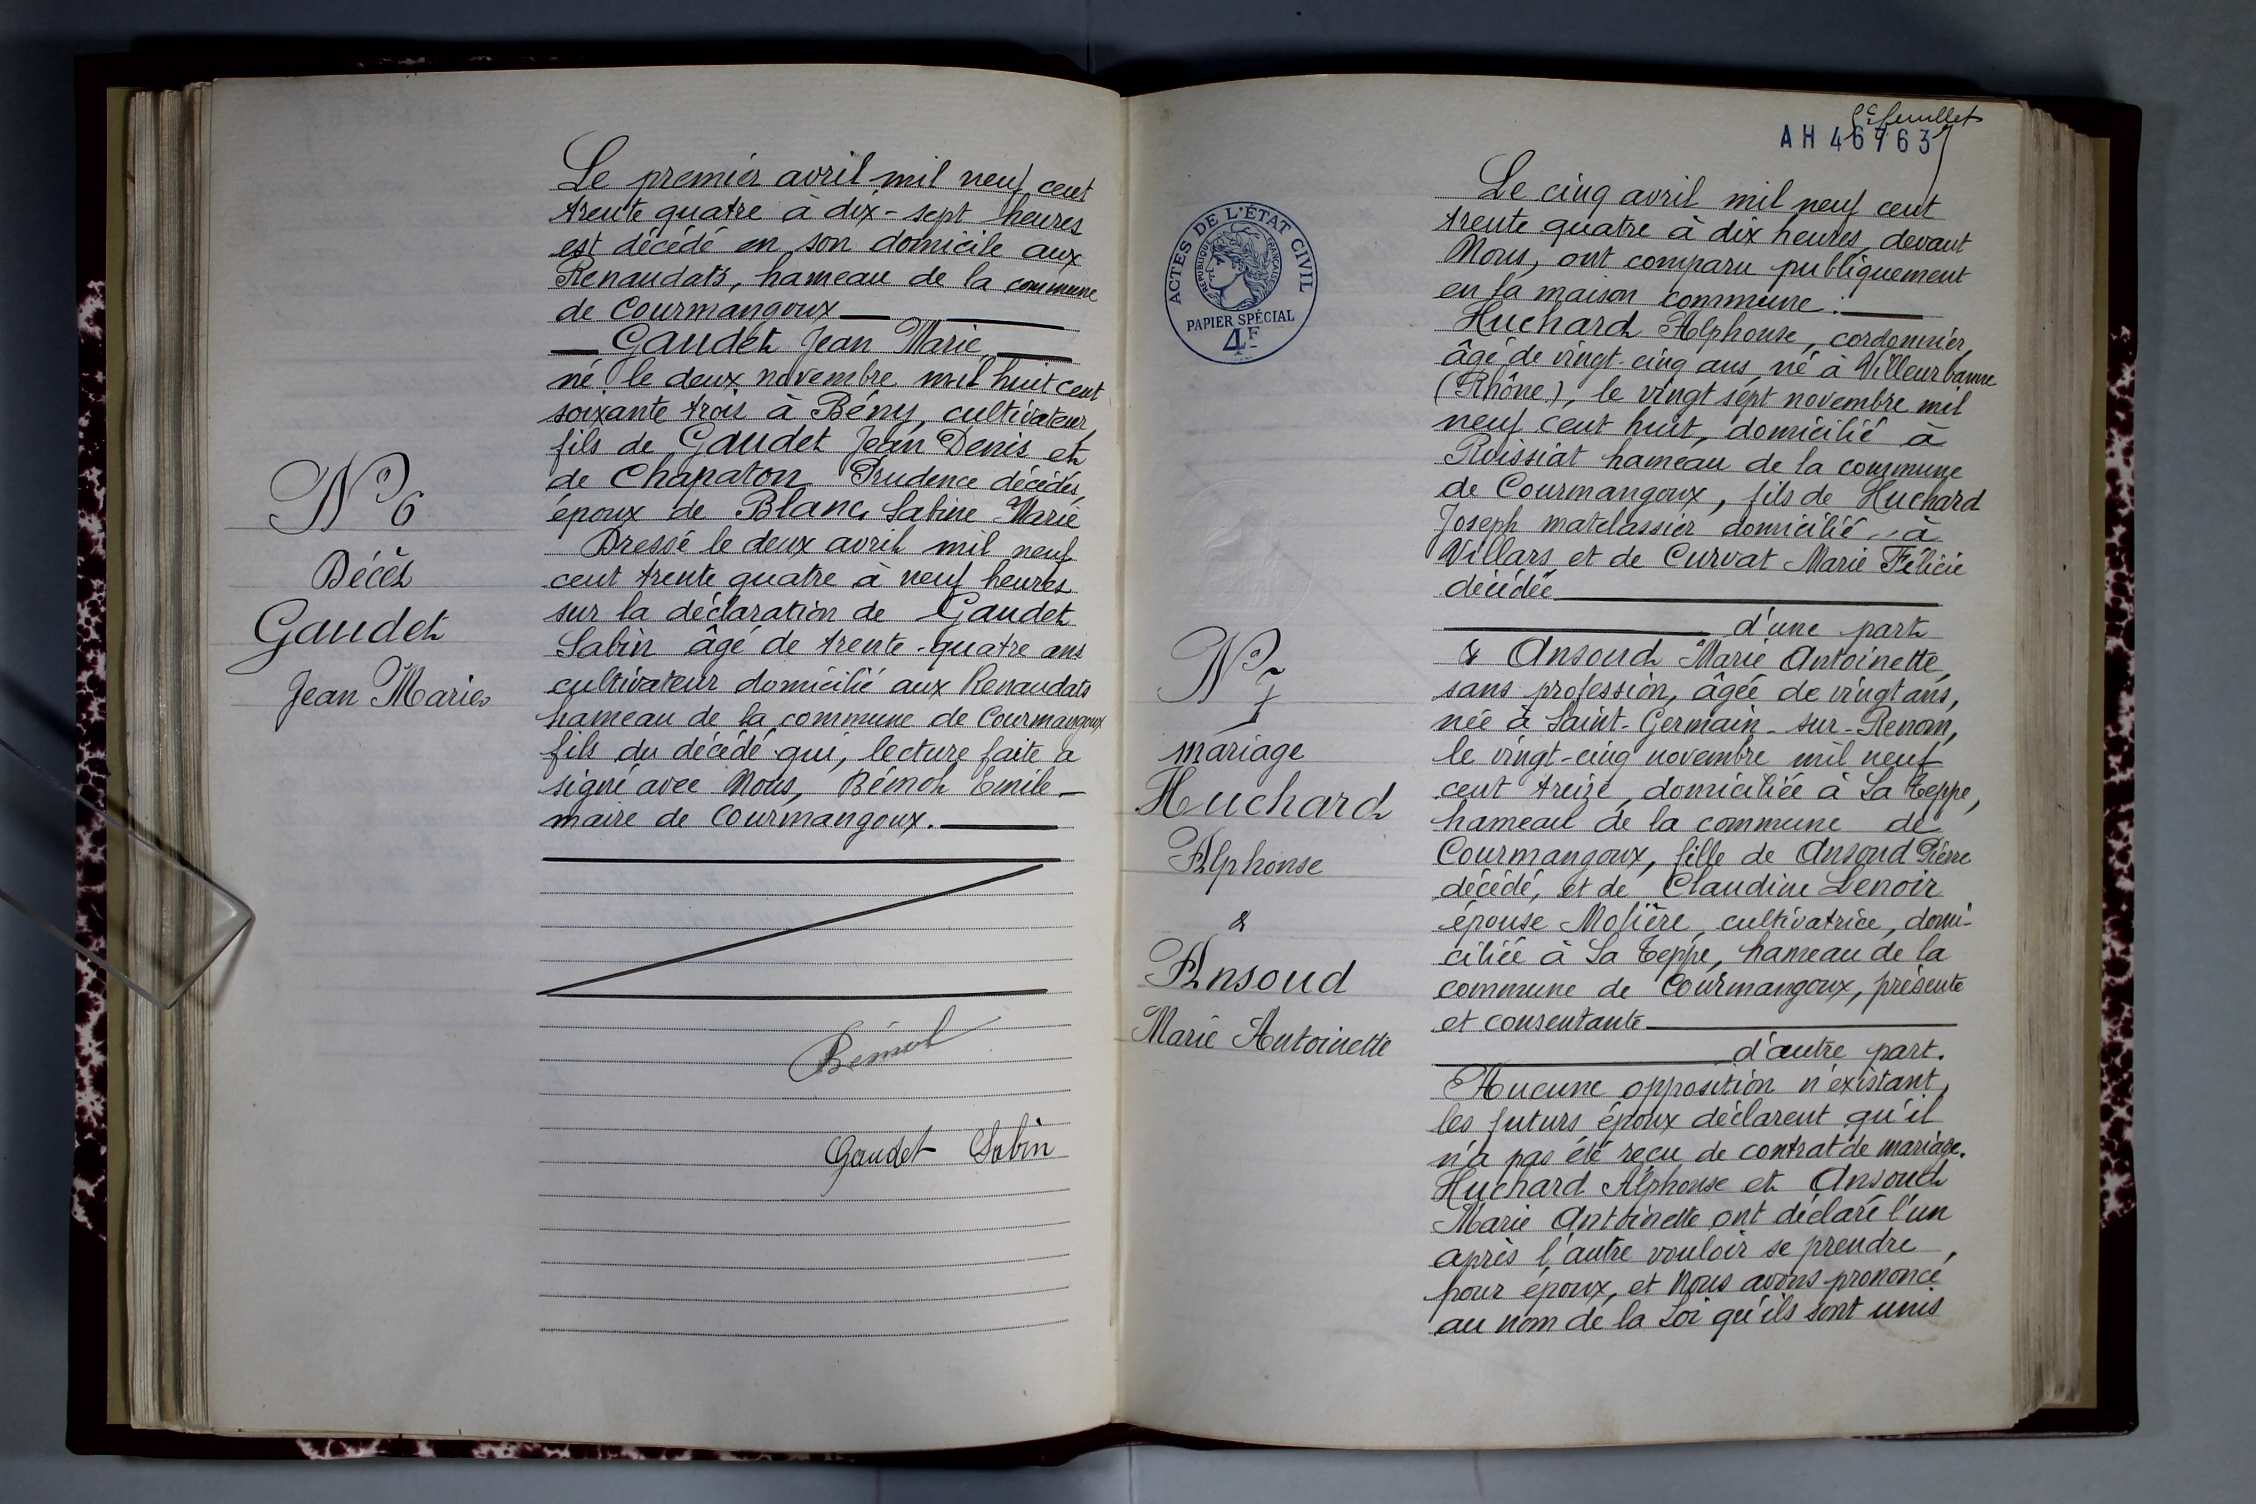 N° 6
Décès
Gaudet
Jean Marie
Le premier avril mil neuf cent
trente quatre à dix-sept heures
est décédé en son domicile aux
Renaudats, hameau de la commune
de Courmangoux
Gaudet Jean Marie
né le deux novembre mil huit cent
soixante trois à Bény, cultivateur
fils de Gaudet Jean Denis et
de Chapaton Prudence décédés,
époux de Blanc Sabine Marie
Dressé le deux avril mil neuf
cent trente quatre à neuf heures
sur la déclaration de Gaudet
Sabin âgé de trente-quatre ans
cultivateur domicilié aux Renaudats
hameau de la commune de Courmangoux
fils du décédé qui, lecture faite a
signé avec Nous, Bémol Emile
maire de Courmangoux.
Bémol
Gaudet Sabin
feuillet
AH 46763
ACTES DE L'ÉTAT CIVIL
RÉPUBLIQUE FRANÇAISE
PAPIER SPÉCIAL
4F
N° 7
mariage
Huchard
Alphonse
&
Ansoud
Marie Antoinette
Le cinq avril mil neuf cent
trente quatre à dix heures, devant
Nous, ont comparu publiquement
en la maison commune :
Huchard Alphonse, cordonnier,
âgé de vingt-cinq ans, né à Villeurbanne
(Rhône), le vingt sept novembre mil
neuf cent huit, domicilié à
Roissiat hameau de la commune
de Courmangoux, fils de Huchard
Joseph matelassier domicilié à
Villars et de Curvat Marie Félicie
décédée
d'une part
& Ansoud Marie Antoinette,
sans profession, âgée de vingt ans,
née à Saint-Germain-sur-Renom,
le vingt-cinq novembre mil neuf
cent treize, domiciliée à La Teppe,
hameau de la commune de
Courmangoux, fille de Ansoud Pierre
décédé, et de Claudine Lenoir
épouse Molière, cultivatrice, domi-
ciliée à La Teppe, hameau de la
commune de Courmangoux, présente
et consentante
d'autre part.
Aucune opposition n'existant,
les futurs époux déclarent qu'il
n'a pas été reçu de contrat de mariage.
Huchard Alphonse et Ansoud
Marie Antoinette ont déclaré l'un
après l'autre vouloir se prendre,
pour époux, et Nous avons prononcé
au nom de la Loi qu'ils sont unis